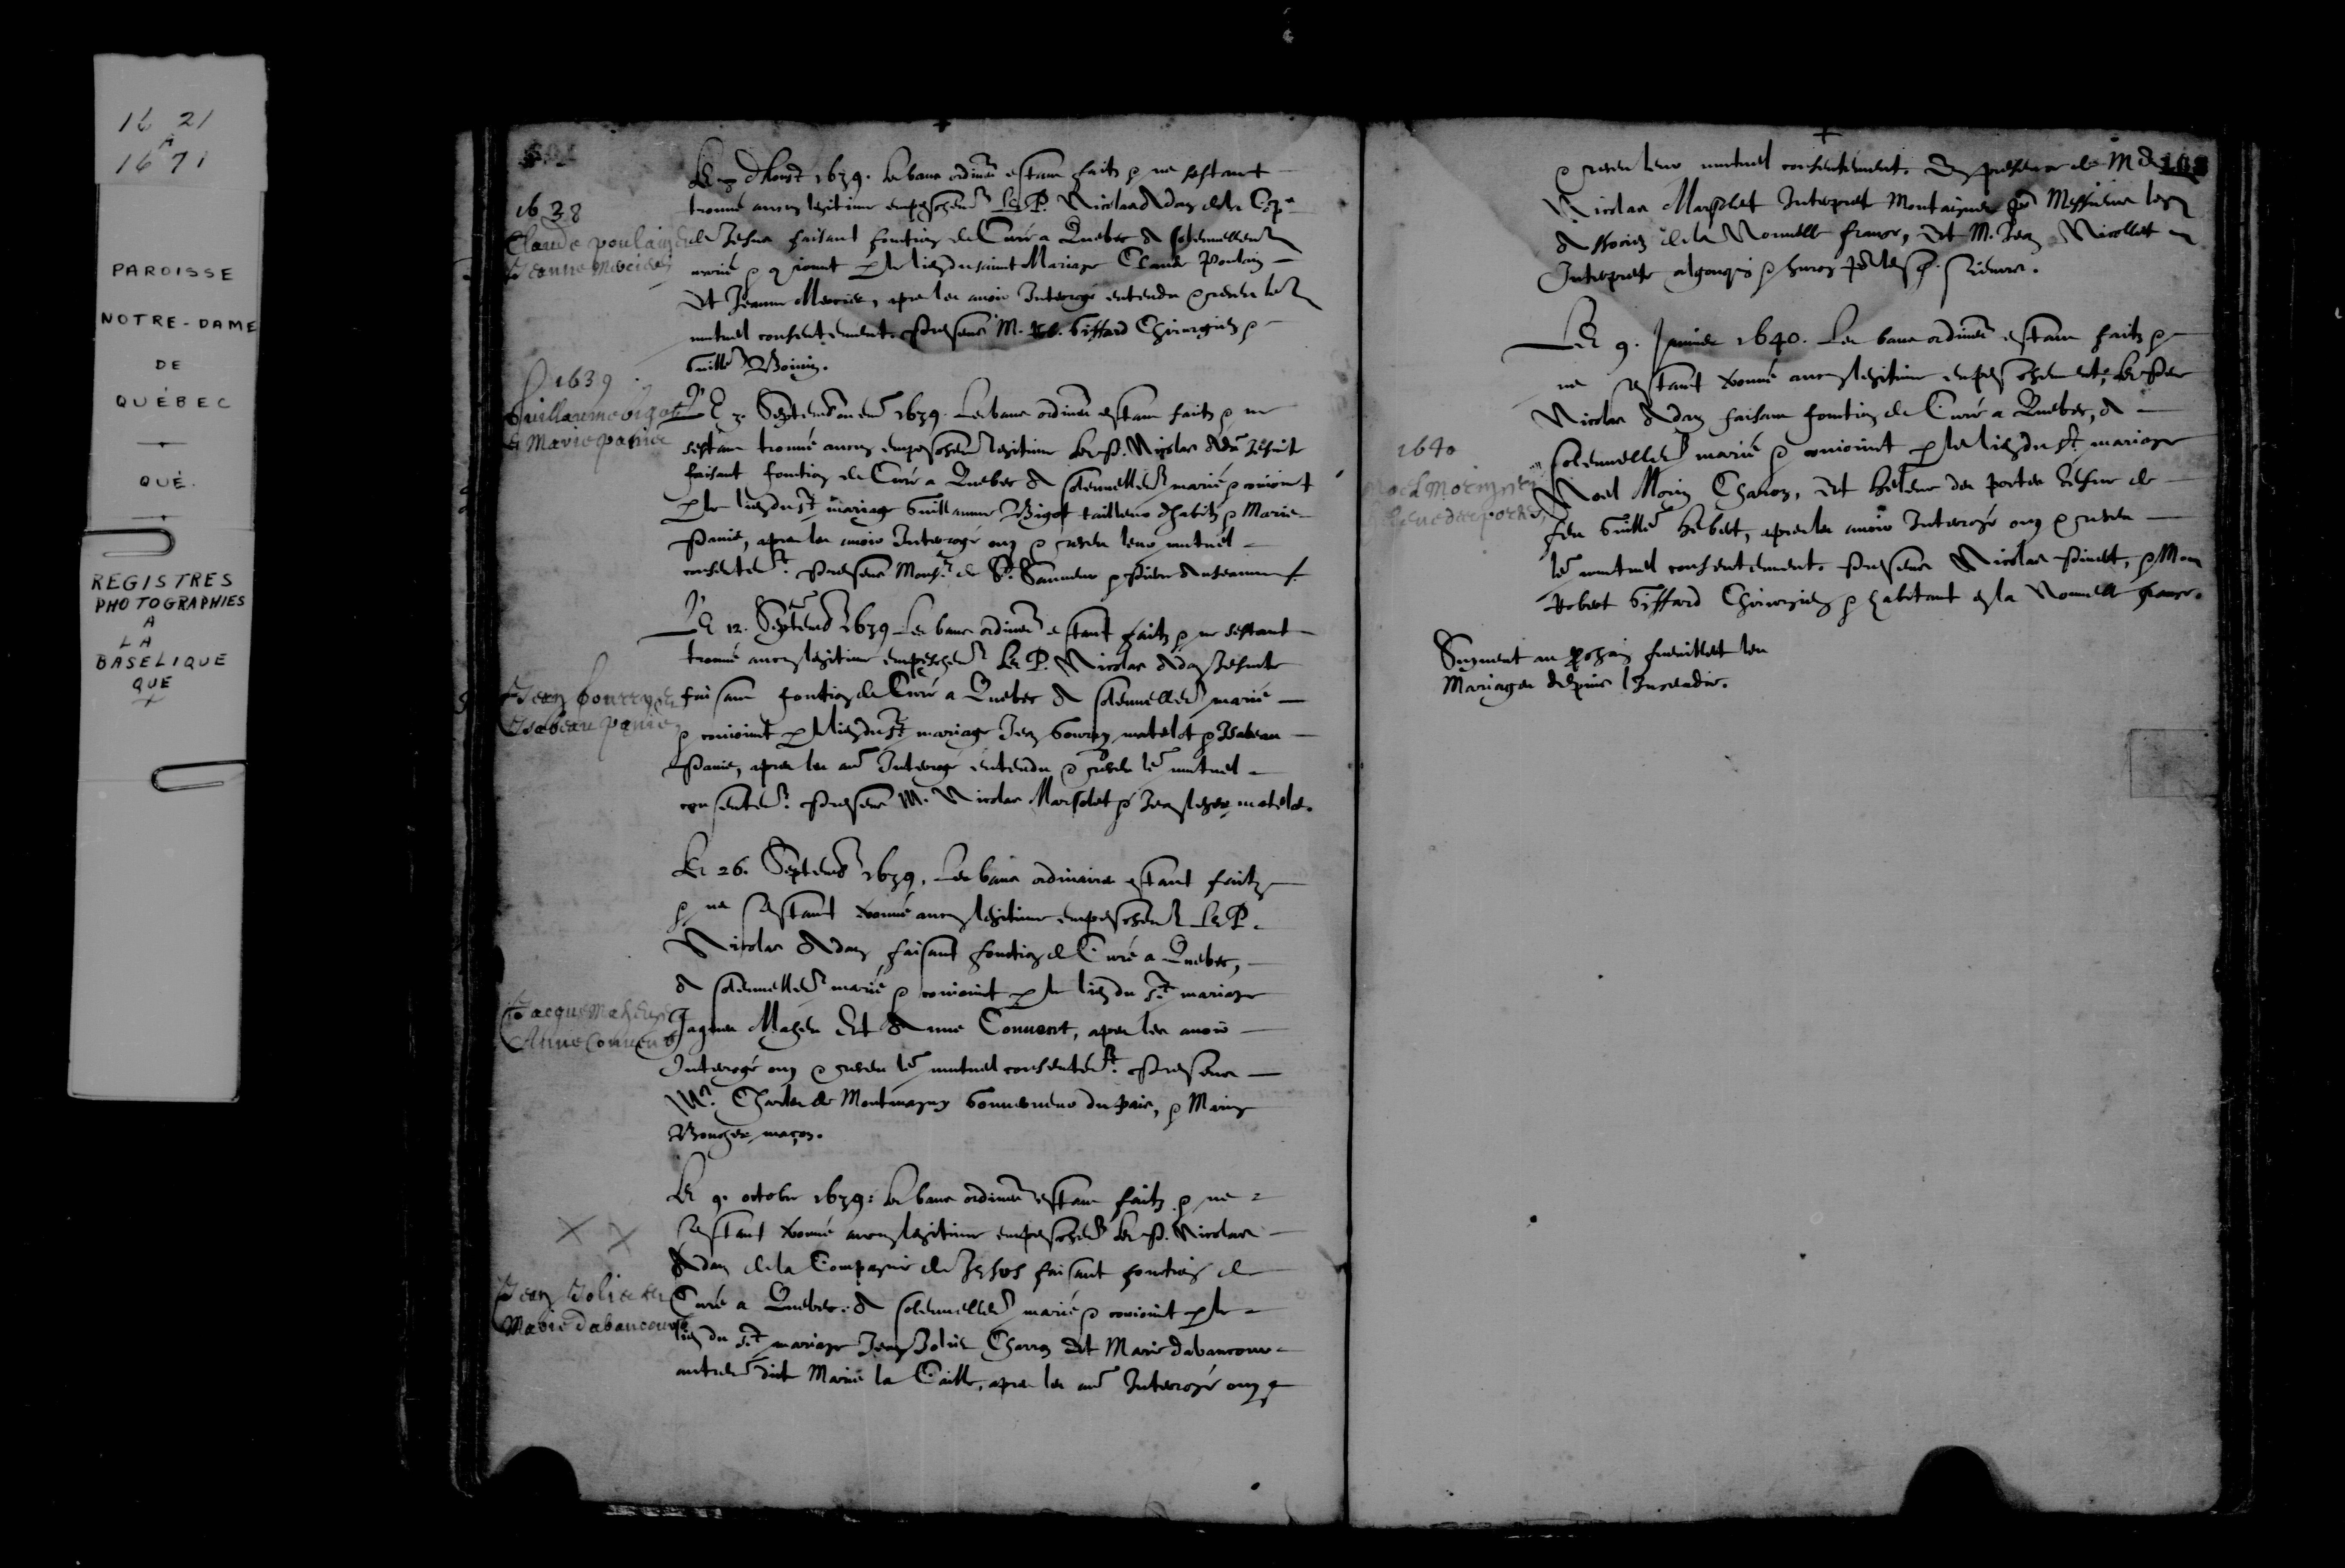 16 21
A
16 71
PAROISSE
NOTRE-DAME
DE
QUÉBEC
QUÉ.
REGISTRES
PHOTOGRAPHIES
A
LA
BASELIQUE
QUE
1638
Claude poulain et
Jeanne Mercier
1639
Guillaume bigot
et Marie panie
Jean gourry et
Isabeau panie
Jacque Maheu et
Anne Convent
Jean Jolie et
Marie dabancourt
Le d'Aoust 1639. Les bans ordinres estans faits & ne sestant
trouvé aucun legitime empeschemt Le P. Nicolas Adam de la Cope
de Jesus faisant fonction de Curé a Quebec A solemnellemt
marié & conjoint par le lien du saint Mariage Claude Poulain
Et Jeanne Mercier, apres les avoir Interogé entendu & receu le
mutuel consentement. Presens M. Rob. Giffard Chirurgien &
Guille Boivin.
Le 3. Septemb 1639. Les bans ordinres estans faits & ne
sestant trouvé aucun empeschemt legitime Le P. Nicolas Adā Jesuite
faisant fonction de Curé a Quebec A solemnellemt marié & conioint
par le lien du st mariage Guillaume Bigot tailleur dhabits & Marie
Panie, apres les avoir Interogé ouy & receu leur mutuel
consentemt. Presens Monsr de St. Sauveur &
Le 12. Septemb 1639 Les bans ordinres estant faits & ne sestant
trouvé aucun legitime empeschemt Le P. Nicolas Adam Jesuite
faisant fonction de Curé a Quebec A solemnellemt marié
& conioint par le lien du St mariage Jean Gourry matelot & Isabeau
Panie, apres les avr Interogé entendu & receu lr mutuel
consentemt. Presens M. Nicolas Marsolet & Jean matelot.
Le 26. Septemb 1639. Les bans ordinaires estant faits
& ne sestant trouvé aucun legitime empeschemt Le P.
Nicolas Adam faisant fonction de Curé a Quebec,
A solemnellemt marié & conioint par le lien du st mariage
Jaques Maheu Et Anne Convent, apres les avoir
Interogé ouy & receu lr mutuel consentemt. Presens
Mr. Charles de Montmagny Gouverneur du païs, & Marin
Boucher maçon.
Le 9. octobre 1639: Les bans ordinres estans faits & ne
sestant trouvé aucun legitime empeschemt Le P. Nicolas
Adam de la Compagnie de Jesus faisant fonction de
Curé a Quebec. A solemnellemt marié & conioint par le
lien du st mariage Jean Jolie Charron Et Marie dabancour
autremt dict Marie la Caille, apres les avr Interogé ouy &
& receu leur mutuel consentement. En presence de M
Nicolas Marsolet Interprete Montagnes pr Messieurs les
Associez de la Nouvelle france, Et M. Jean Nicollet
Interprete algonquin & huron pr les sieurs.
1640
Noel Morin et
helene desportes
Le 9. Janvier 1640. Les bans ordinres estans faits &
ne sestant trouvé aucun legitime empeschement, Le Pere
Nicolas Adam faisant fonction de Curé a Quebec, A
solemnellemt marié & conioint par le lien du st mariage
Noel Morin Charon, Et Helene des portes vefve de
feu Guille Hebert, apres les avoir Interogé ouy & receu
lr mutuel consentement. Presens Nicolas Pivert, & Mons
Robert Giffard Chirurgien & habitant en la Nouvelle france.
Suyvent au prochain fueillet les
Mariages depuis l'Incendie.